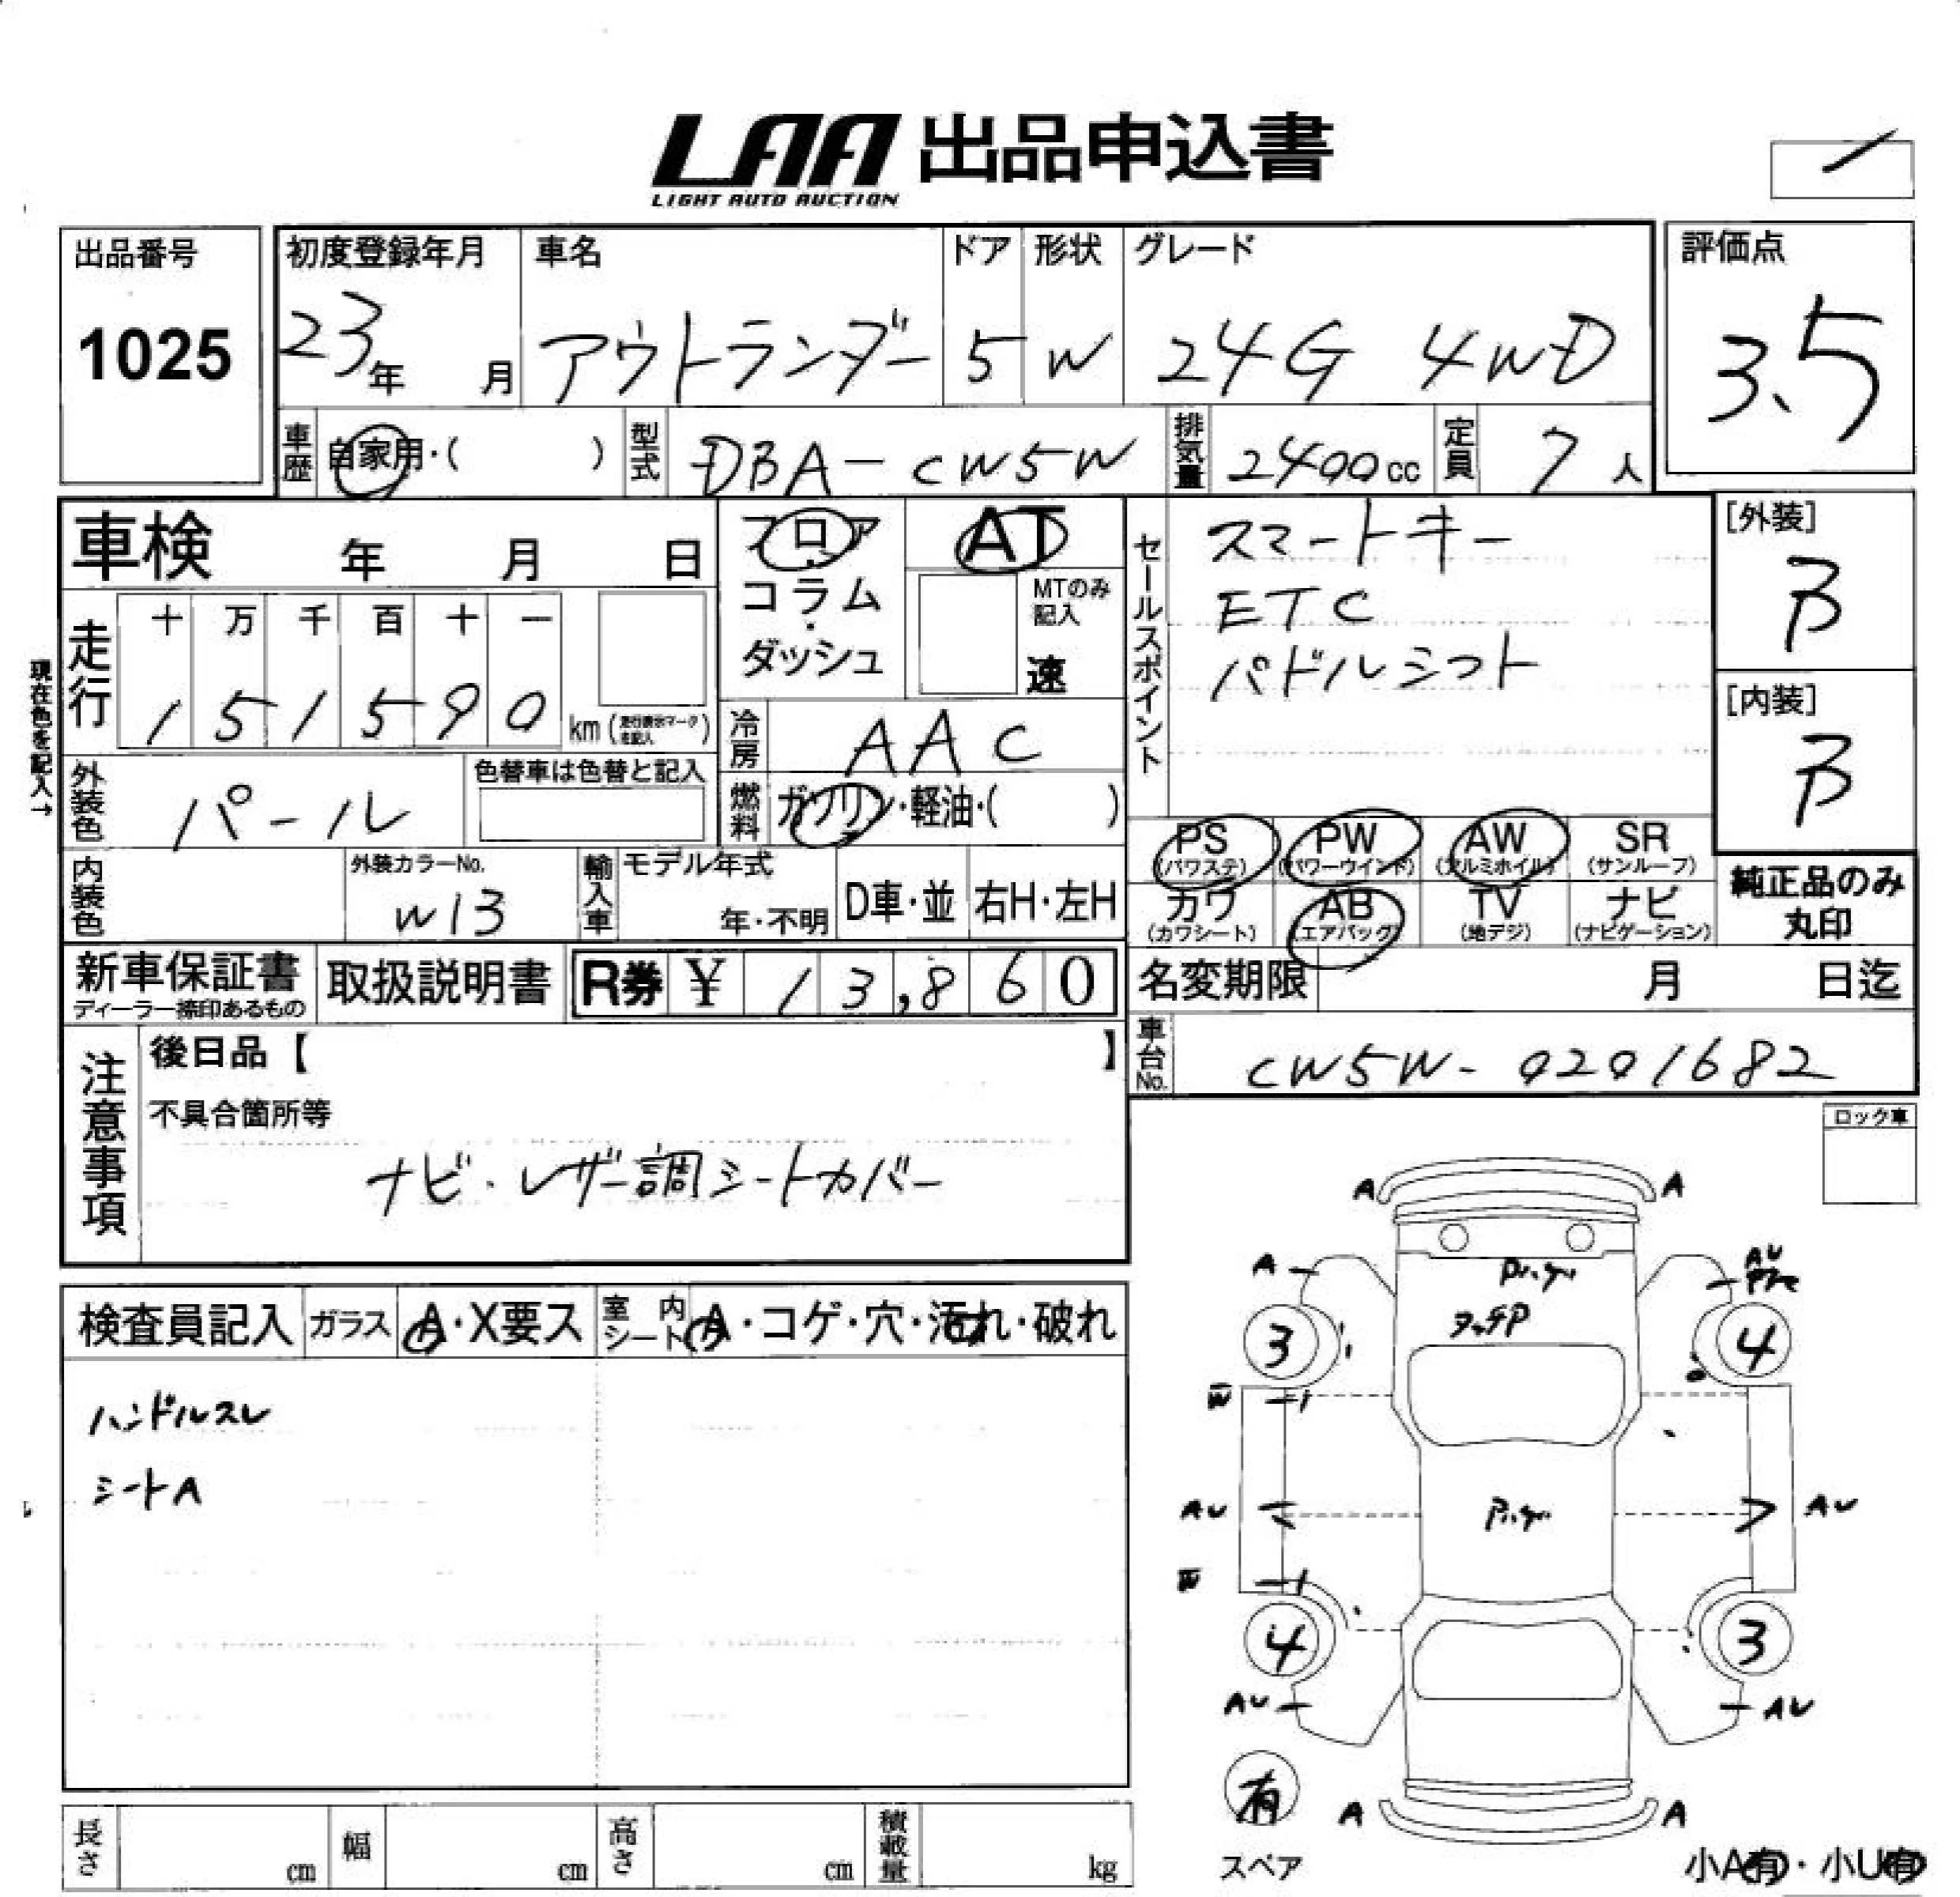 LAA 出品申込書
LIGHT AUTO AUCTION
出品番号
1025
初度登録年月
23年 月
車名
アウトランダー
ドア
5
形状
W
グレード
24G 4WD
評価点
3.5
車歴
自家用・( )
型式
DBA-CW5W
排気量
2400cc
定員
7人
車検 年 月 日
フロア
コラム
・
ダッシュ
AT
MTのみ
記入
速
セールスポイント
スマートキー
ETC
パドルシフト
[外装]
B
[内装]
B
現在色を記入→
走行
十 万 千 百 十 一
1 5 1 5 9 0
km(走行表示マークを記入)
冷房
AAC
外装色
パール
色替車は色替と記入
燃料
ガソリン・軽油・( )
PS
(パワステ)
PW
(パワーウインド)
AW
(アルミホイル)
SR
(サンルーフ)
カワ
(カワシート)
AB
(エアバッグ)
TV
(地デジ)
ナビ
(ナビゲーション)
純正品のみ
丸印
内装色
外装カラーNo.
W13
輸入車
モデル年式
年・不明
D車・並
右H・左H
新車保証書
ディーラー捺印あるもの
取扱説明書
R券 ¥ 13,860
名変期限 月 日迄
車台No.
CW5W-0201682
注意事項
後日品【 】
不具合箇所等
ナビ・レザー調シートカバー
ロック車
検査員記入
ガラス
A・X要ス
室内
シート
A・コゲ・穴・汚れ・破れ
ハンドルスレ
シートA
A A
A AU
タッチP
3 4
W
AU AU
W
4 3
AU AU
有
スペア
A A
小A有・小U有
長さ cm
幅 cm
高さ cm
積載量 kg